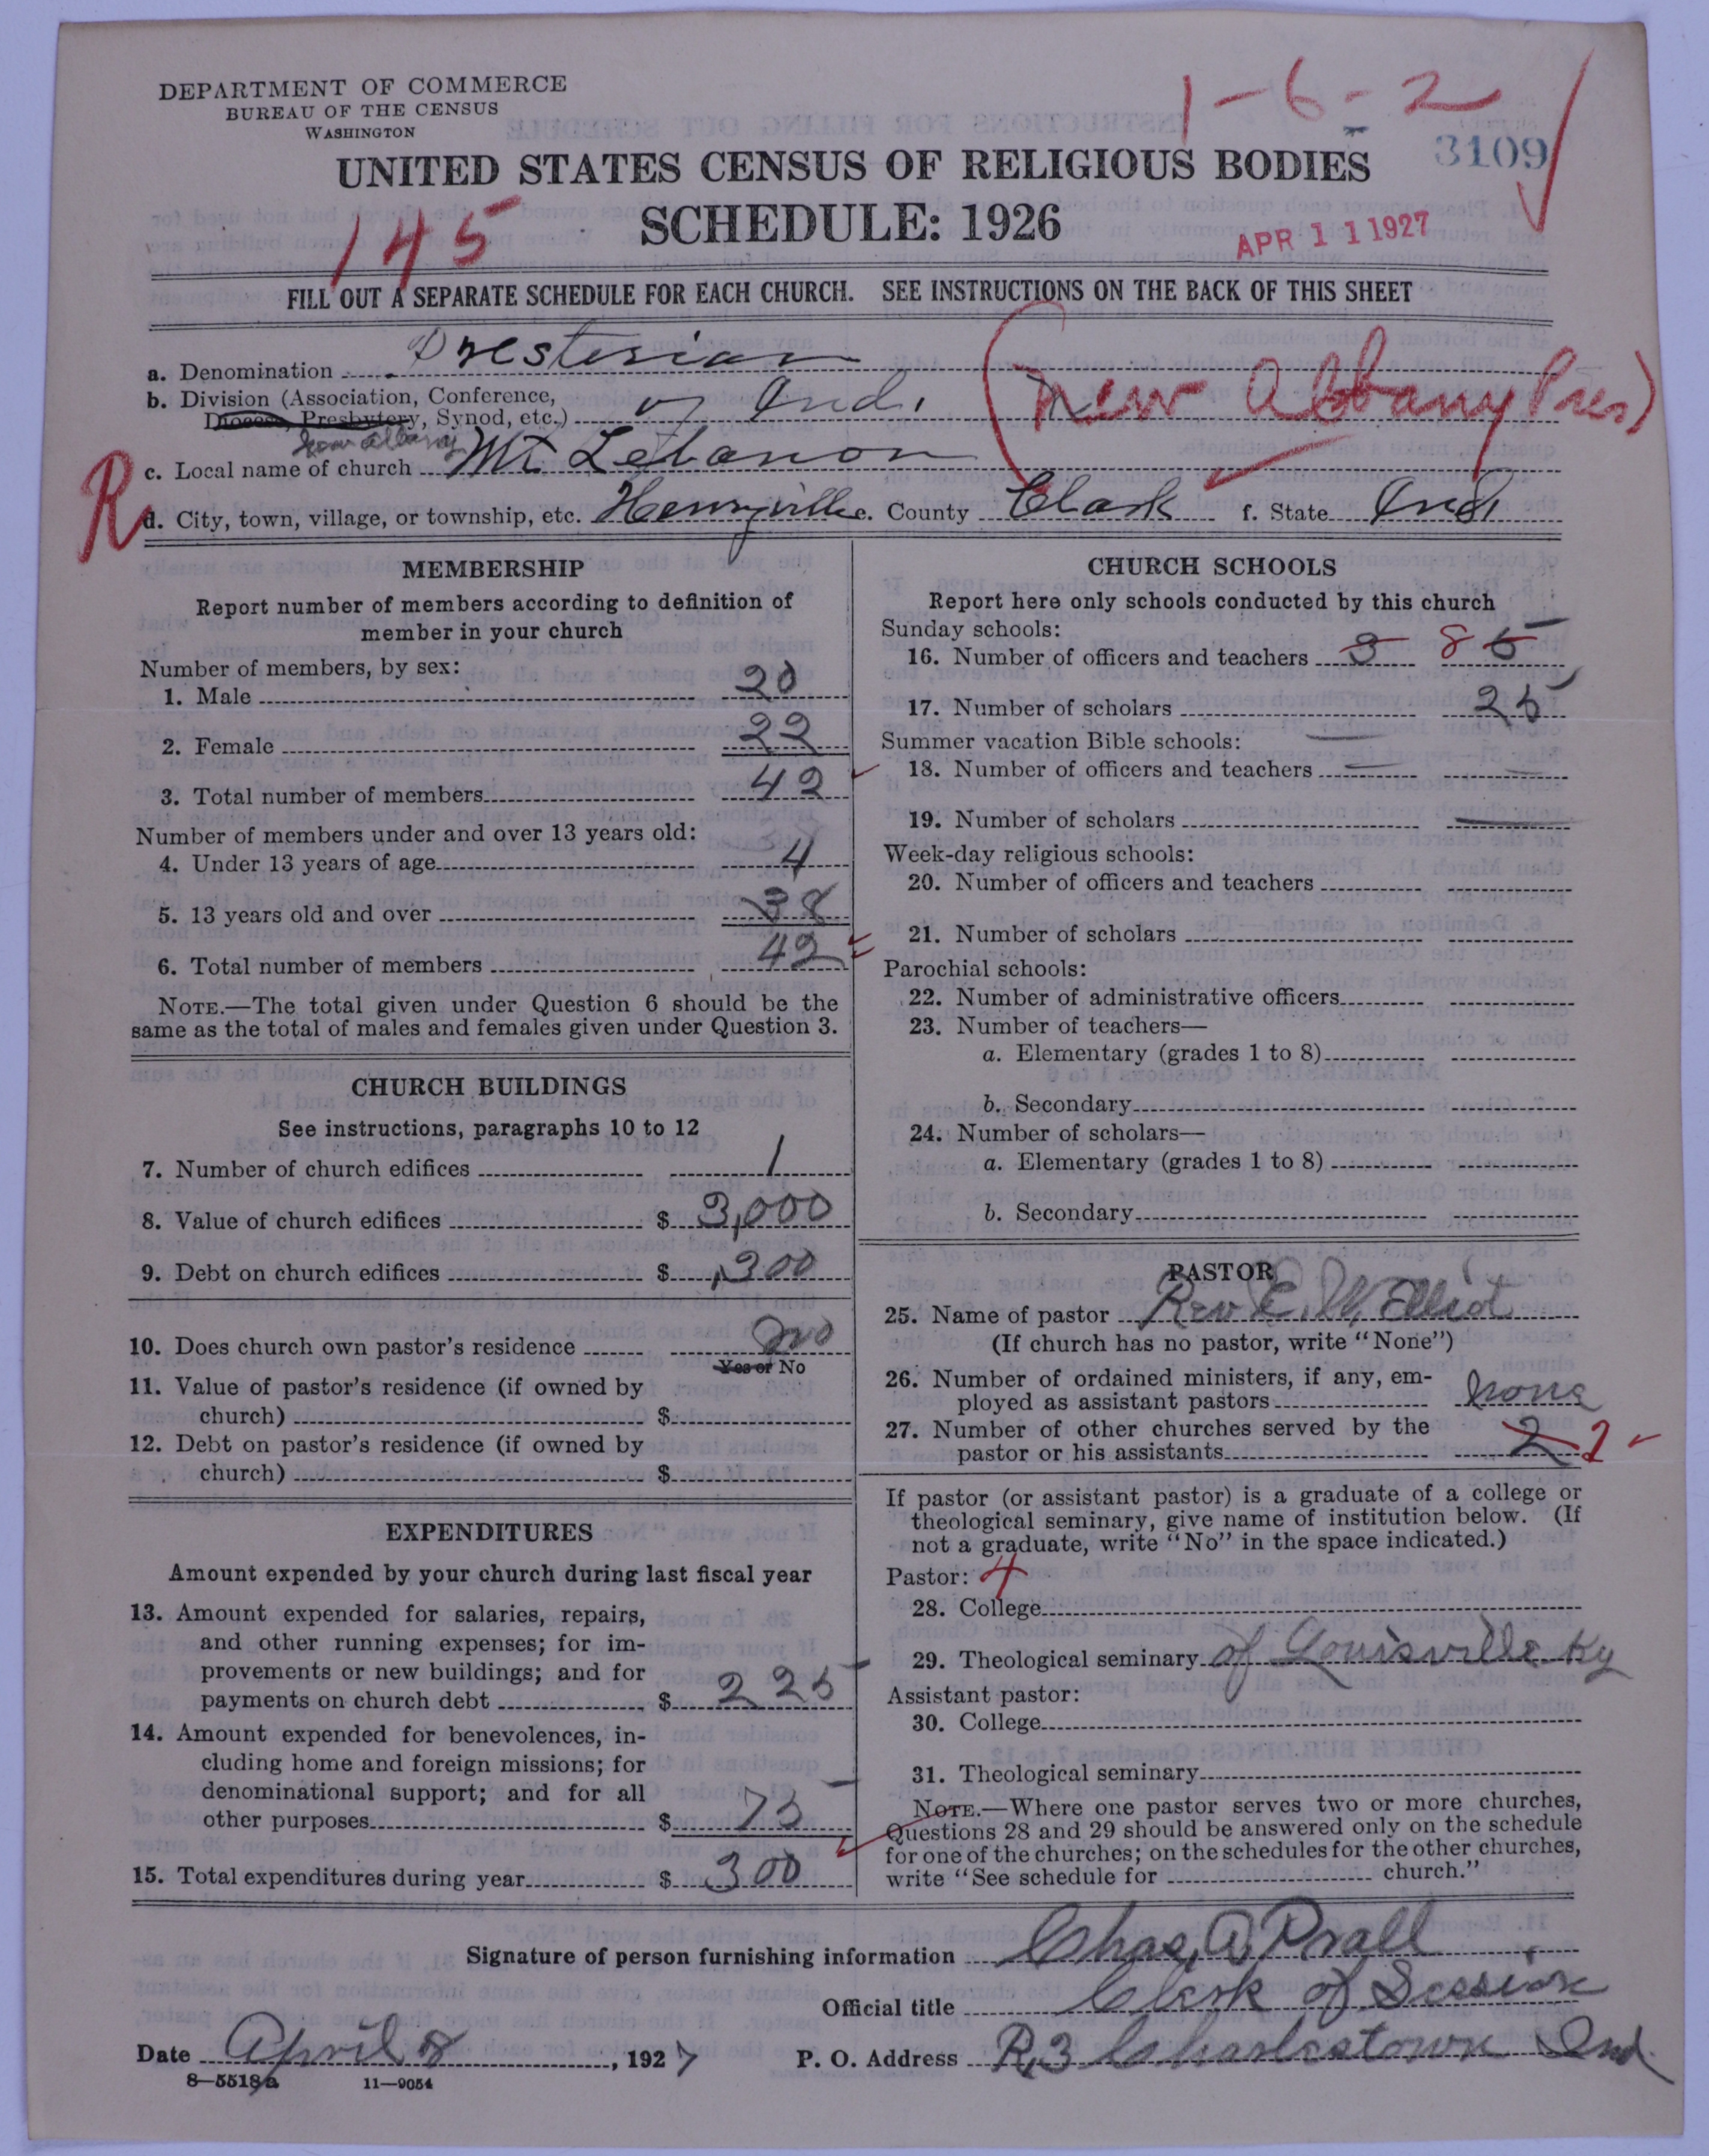 DEPARTMENT OF COMMERCE
BUREAU OF THE CENSUS
WASHINGTON
1-6-2
3109
UNITED STATES CENSUS OF RELIGIOUS BODIES
SCHEDULE: 1926
145
APR 11 1927
FILL OUT A SEPARATE SCHEDULE FOR EACH CHURCH. SEE INSTRUCTIONS ON THE BACK OF THIS SHEET
a. Denomination Presterian
b. Division (Association, Conference, Diocese, Presbytery, Synod, etc.) of Ind. (New Albany Pres)
New Albany
c. Local name of church Mt Lebanon
R
d. City, town, village, or township, etc. Henryville e. County Clark f. State Ind
MEMBERSHIP
Report number of members according to definition of
member in your church
Number of members, by sex:
1. Male 20
2. Female 22
3. Total number of members 42
Number of members under and over 13 years old:
4. Under 13 years of age 4
5. 13 years old and over 38
6. Total number of members 42
NOTE.—The total given under Question 6 should be the
same as the total of males and females given under Question 3.
CHURCH BUILDINGS
See instructions, paragraphs 10 to 12
7. Number of church edifices 1
8. Value of church edifices $ 3,000
9. Debt on church edifices $ 300
10. Does church own pastor's residence no
Yes or No
11. Value of pastor's residence (if owned by
church) $
12. Debt on pastor's residence (if owned by
church) $
EXPENDITURES
Amount expended by your church during last fiscal year
13. Amount expended for salaries, repairs,
and other running expenses; for im-
provements or new buildings; and for
payments on church debt $ 225
14. Amount expended for benevolences, in-
cluding home and foreign missions; for
denominational support; and for all
other purposes $ 75
15. Total expenditures during year $ 300
CHURCH SCHOOLS
Report here only schools conducted by this church
Sunday schools:
16. Number of officers and teachers 3 8 5
17. Number of scholars 25
Summer vacation Bible schools:
18. Number of officers and teachers
19. Number of scholars
Week-day religious schools:
20. Number of officers and teachers
21. Number of scholars
Parochial schools:
22. Number of administrative officers
23. Number of teachers—
a. Elementary (grades 1 to 8)
b. Secondary
24. Number of scholars—
a. Elementary (grades 1 to 8)
b. Secondary
PASTOR
25. Name of pastor Rev E. W. Elliot
(If church has no pastor, write "None")
26. Number of ordained ministers, if any, em-
ployed as assistant pastors none
27. Number of other churches served by the
pastor or his assistants 2 1
If pastor (or assistant pastor) is a graduate of a college or
theological seminary, give name of institution below. (If
not a graduate, write "No" in the space indicated.)
Pastor: 4
28. College
29. Theological seminary of Louisville Ky
Assistant pastor:
30. College
31. Theological seminary
NOTE.—Where one pastor serves two or more churches,
Questions 28 and 29 should be answered only on the schedule
for one of the churches; on the schedules for the other churches,
write "See schedule for church."
Signature of person furnishing information Chas. A Prall
Official title Clerk of Session
Date April 8, 1927 P. O. Address R,3 Charlestown Ind.
8—5518a 11—9054